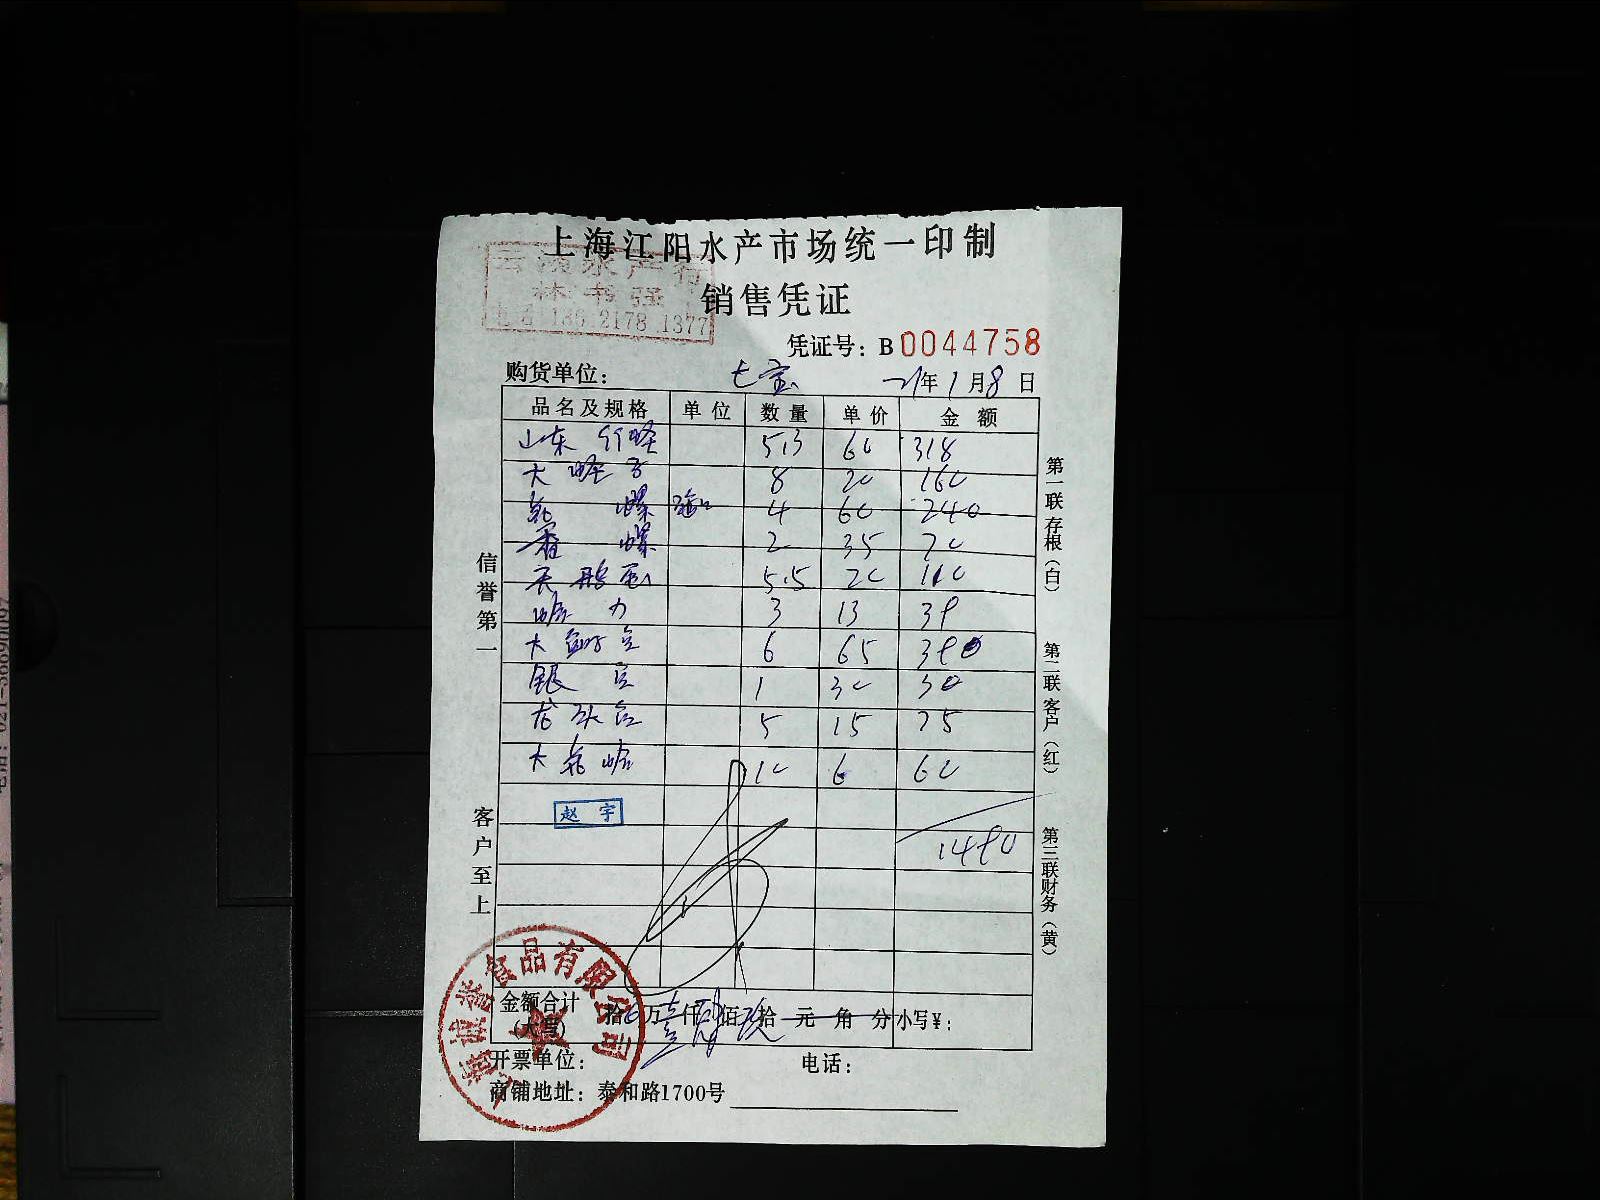 上海江阳水产市场统一印制
水产行
林书强
186 2178 1377
销售凭证
凭证号：B0044758
购货单位： 七宝 21年1月8日
品名及规格 单位 数量 单价 金额
山东竹蛏 5.3 60 318
大蛏子 8 20 160
螺 4 60 240
螺 2 35 70
天鹅蛋 5.5 20 110
蛤力 3 13 39
大 6 65 390
银 1 30 30
龙头 5 15 75
大花蛤 10 6 60
赵宇
1490
信誉第一
客户至上
第一联存根（白）
第二联客户（红）
第三联财务（黄）
金额合计（大写） 拾万壹仟肆佰玖拾元角分 小写￥：
开票单位： 电话：
商铺地址：泰和路1700号
上海誉食品有限公司